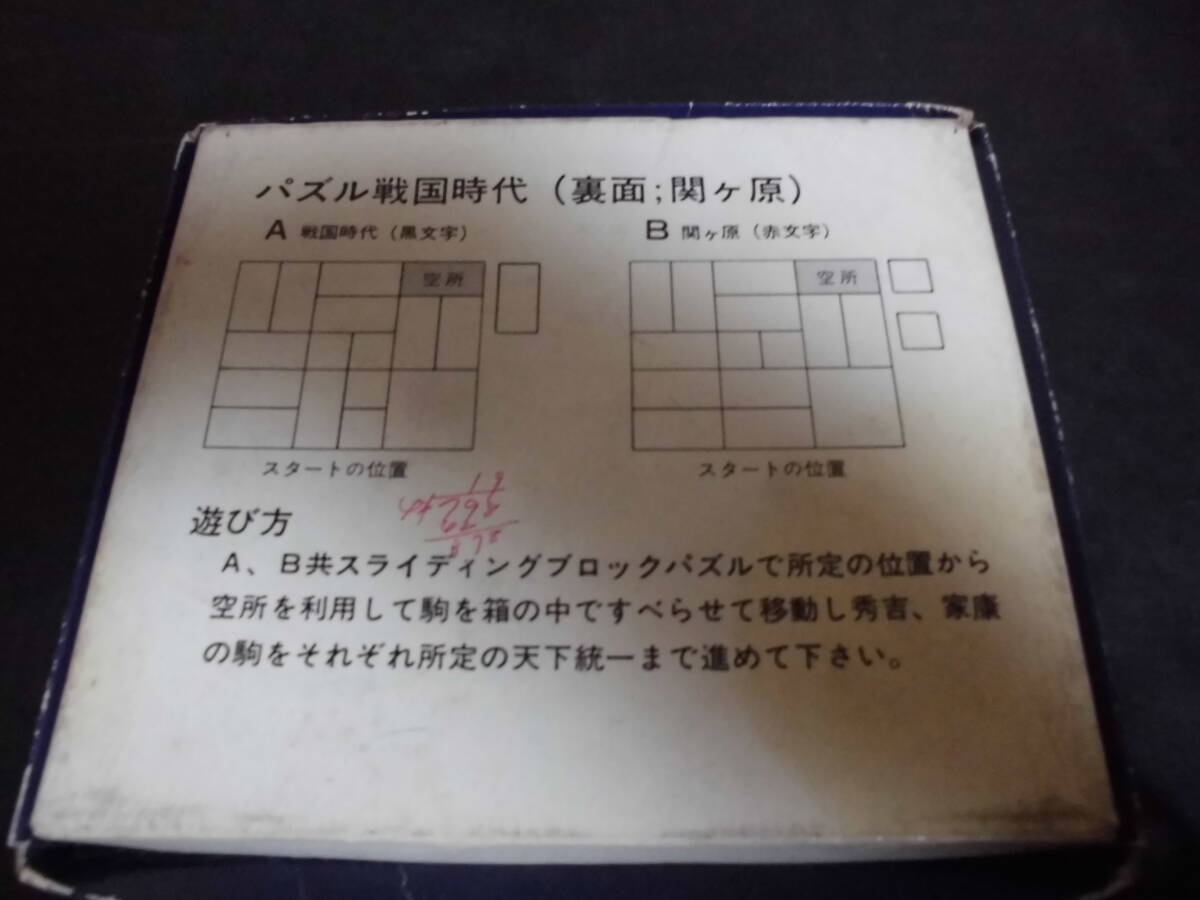 パズル戦国時代（裏面;関ヶ原）
A 戦国時代（黒文字）
B 関ヶ原（赤文字）
空所
空所
スタートの位置
スタートの位置
遊び方
A、B共スライディングブロックパズルで所定の位置から
空所を利用して駒を箱の中ですべらせて移動し秀吉、家康
の駒をそれぞれ所定の天下統一まで進めて下さい。